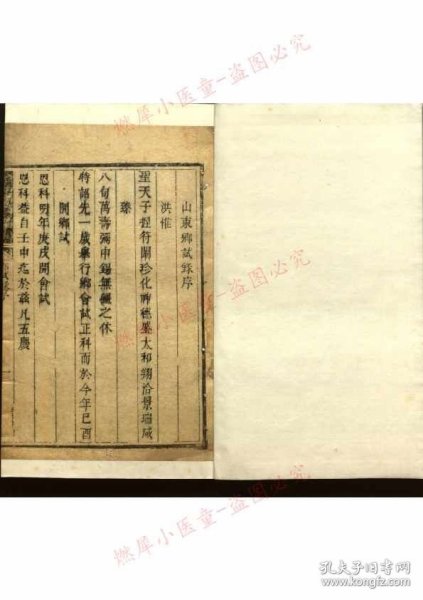 山東鄉試錄序
洪惟
聖天子握符闡珍化神德盛太和翔洽景瑞咸
臻
八旬萬壽彌申錫無疆之休
特詔先一歲舉行鄉會試正科而於今年己酉
開鄉試
恩科明年庚戌開會試
恩科蓋自壬申迄於茲凡五慶
燃犀小医童-盗图必究
燃犀小医童-盗图必究
燃犀小医童-盗图必究
孔夫子旧书网
kongfz.com